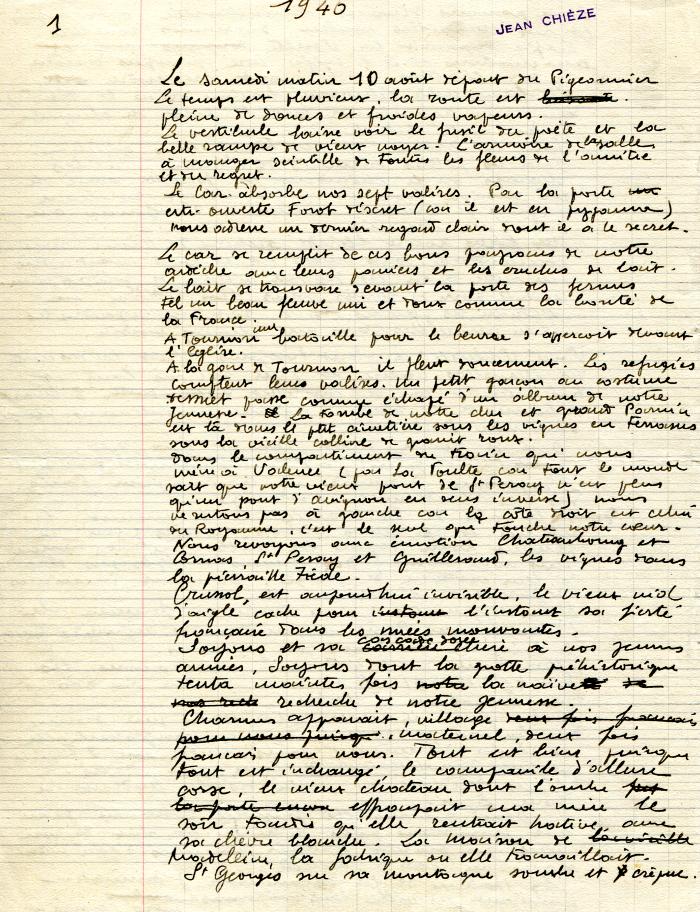 1940
1
JEAN CHIÈZE
Le samedi matin 10 août départ du Pigeonnier
Le temps est pluvieux, la route est
pleine de douces et froides vapeurs.
Le vestibule laisse voir le fusil du poète et la
belle rampe de vieux noyer. L'armoire de la salle
à manger scintille de toutes les fleurs de l'amitié
et du regret.
Le car absorbe nos sept valises. Par la porte
entr-ouverte Forot discret (car il est en pyjama)
nous adresse un dernier regard clair dont il a le secret.
Le car se remplit de ces bons paysans de notre
ardèche avec leurs paniers et les cruches de lait.
Le lait se transvase devant la porte des fermes
tel un beau fleuve uni et doux comme la bonté de
la France.
A Tournon une bataille pour le beurre s'aperçoit devant
l'Eglise.
A la gare de Tournon il pleut doucement. Les refugiés
comptent leurs valises. Un petit garçon au costume
passe comme échapé d'un album de notre
Jeunesse. La tombe de notre cher et grand
est là dans le ptit cimetière sous les vignes en terrasses
sous la vieille colline de granit roux.
Dans le compartiment du train qui nous
mène à Valence (par La Voulte car tout le monde
sait que notre vieux pont de St Peray n'est plus
qu'un pont d'avignon en sens inverse) nous
ne restons pas à gauche car le côté droit est celui
du Royaume, c'est le seul qui touche notre cœur.
Nous revoyons avec émotion Chateaubourg et
Cornas, St Peray et Guilherand, les vignes dans
la pierraille tiède.
Crussol, est aujourd'hui invisible, le vieux nid
d'aigle cache pour l'instant sa fierté
française dans les nuées mouvantes.
Soyons et sa cascade chère à nos jeunes
années, Soyons dont la grotte préhistorique
tenta maintes fois la naïve
recherche de notre jeunesse.
Charmes apparait, village
maternel, deux fois
français pour nous. Tout est bien puisque
tout est inchangé, le campanile d'allure
corse, le vieux chateau dont l'ombre
effrayait ma mère le
soir tandis qu'elle rentrait hative, avec
sa chèvre blanche. La maison de
Madeleine, la fabrique ou elle travaillait.
St Georges sur sa montagne sombre et crépue.